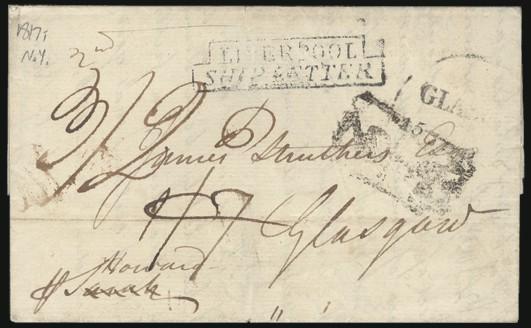 1817
N.Y.
2nd
LIVERPOOL
SHIP LETTER
GLA
3/2
James Struthers
Glasgow
Howard
p Sarah